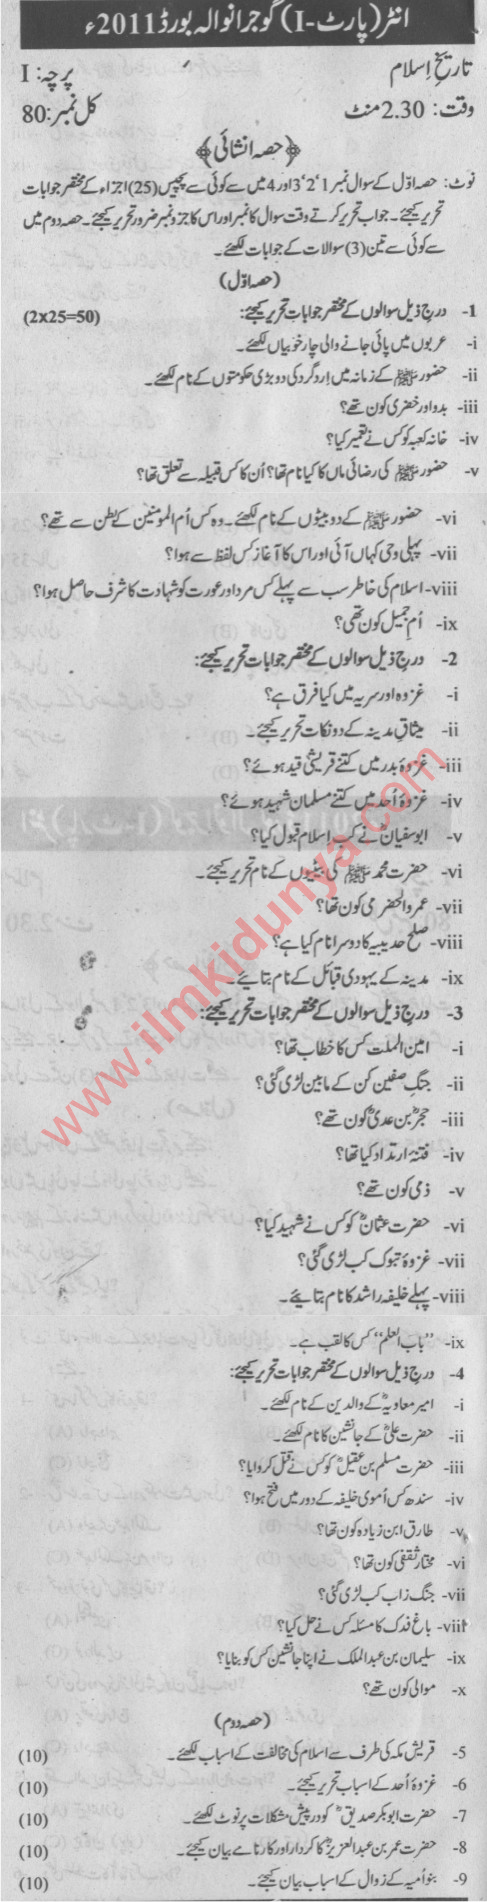 انٹر (پارٹ-I) گوجرانوالہ بورڈ 2011ء
تاریخِ اسلام پرچہ: I
وقت: 2.30 منٹ کل نمبر: 80
﴿حصہ انشائی﴾
نوٹ: حصہ اوّل کے سوال نمبر 1، 2، 3 اور 4 میں سے کوئی سے پچیس (25) اجزاء کے مختصر جوابات
تحریر کیجئے۔ جواب تحریر کرتے وقت سوال کا نمبر اور اس کا جزو نمبر ضرور تحریر کیجئے۔ حصہ دوم میں
سے کوئی سے تین (3) سوالات کے جوابات لکھئے۔
(حصہ اوّل)
1- درج ذیل سوالوں کے مختصر جوابات تحریر کیجئے: (2x25=50)
i- عربوں میں پائی جانے والی چار خوبیاں لکھئے۔
ii- حضور ﷺ کے زمانہ میں اردگرد کی دو بڑی حکومتوں کے نام لکھئے۔
iii- بدو اور خضری کون تھے؟
iv- خانہ کعبہ کو کس نے تعمیر کیا؟
v- حضور ﷺ کی رضائی ماں کا کیا نام تھا؟ اُن کا کس قبیلہ سے تعلق تھا؟
vi- حضور ﷺ کے دو بیٹوں کے نام لکھئے۔ وہ کس اُم المومنین کے بطن سے تھے؟
vii- پہلی وحی کہاں آئی اور اس کا آغاز کس لفظ سے ہوا؟
viii- اسلام کی خاطر سب سے پہلے کس مرد اور عورت کو شہادت کا شرف حاصل ہوا؟
ix- اُم جمیل کون تھی؟
2- درج ذیل سوالوں کے مختصر جوابات تحریر کیجئے:
i- غزوہ اور سریہ میں کیا فرق ہے؟
ii- میثاقِ مدینہ کے دو نکات تحریر کیجئے۔
iii- غزوۂ بدر میں کتنے قریشی قید ہوئے؟
iv- غزوۂ اُحد میں کتنے مسلمان شہید ہوئے؟
v- ابوسفیانؓ نے کب اسلام قبول کیا؟
vi- حضرت محمد ﷺ کی بیٹیوں کے نام تحریر کیجئے۔
vii- عمرو الحضرمی کون تھا؟
viii- صلح حدیبیہ کا دوسرا نام کیا ہے؟
ix- مدینہ کے یہودی قبائل کے نام بتائیے۔
3- درج ذیل سوالوں کے مختصر جوابات تحریر کیجئے:
i- امین الملت کس کا خطاب تھا؟
ii- جنگِ صفین کن کے مابین لڑی گئی؟
iii- حجرؓ بن عدیؓ کون تھے؟
iv- فتنۂ ارتداد کیا تھا؟
v- ذمی کون تھے؟
vi- حضرت عثمانؓ کو کس نے شہید کیا؟
vii- غزوۂ تبوک کب لڑی گئی؟
viii- پہلے خلیفہ راشد کا نام بتائیے۔
ix- "باب العلم" کس کا لقب ہے۔
4- درج ذیل سوالوں کے مختصر جوابات تحریر کیجئے:
i- امیر معاویہؓ کے والدین کے نام لکھئے۔
ii- حضرت علیؓ کے جانشین کا نام لکھئے۔
iii- حضرت مسلم بن عقیلؓ کو کس نے قتل کروایا؟
iv- سندھ کس اُموی خلیفہ کے دور میں فتح ہوا؟
v- طارق ابن زیادہ کون تھا؟
vi- مختار ثقفی کون تھا؟
vii- جنگ زاب کب لڑی گئی؟
viii- باغ فدک کا مسئلہ کس نے حل کیا؟
ix- سلیمان بن عبدالملک نے اپنا جانشین کس کو بنایا؟
x- موالی کون تھے؟
(حصہ دوم)
5- قریشِ مکہ کی طرف سے اسلام کی مخالفت کے اسباب لکھئے۔ (10)
6- غزوۂ اُحد کے اسباب تحریر کیجئے۔ (10)
7- حضرت ابوبکر صدیقؓ کو درپیش مشکلات پر نوٹ لکھئے۔ (10)
8- حضرت عمر بن عبدالعزیزؒ کا کردار اور کارنامے بیان کیجئے۔ (10)
9- بنو اُمیہ کے زوال کے اسباب بیان کیجئے۔ (10)
www.ilmkidunya.com